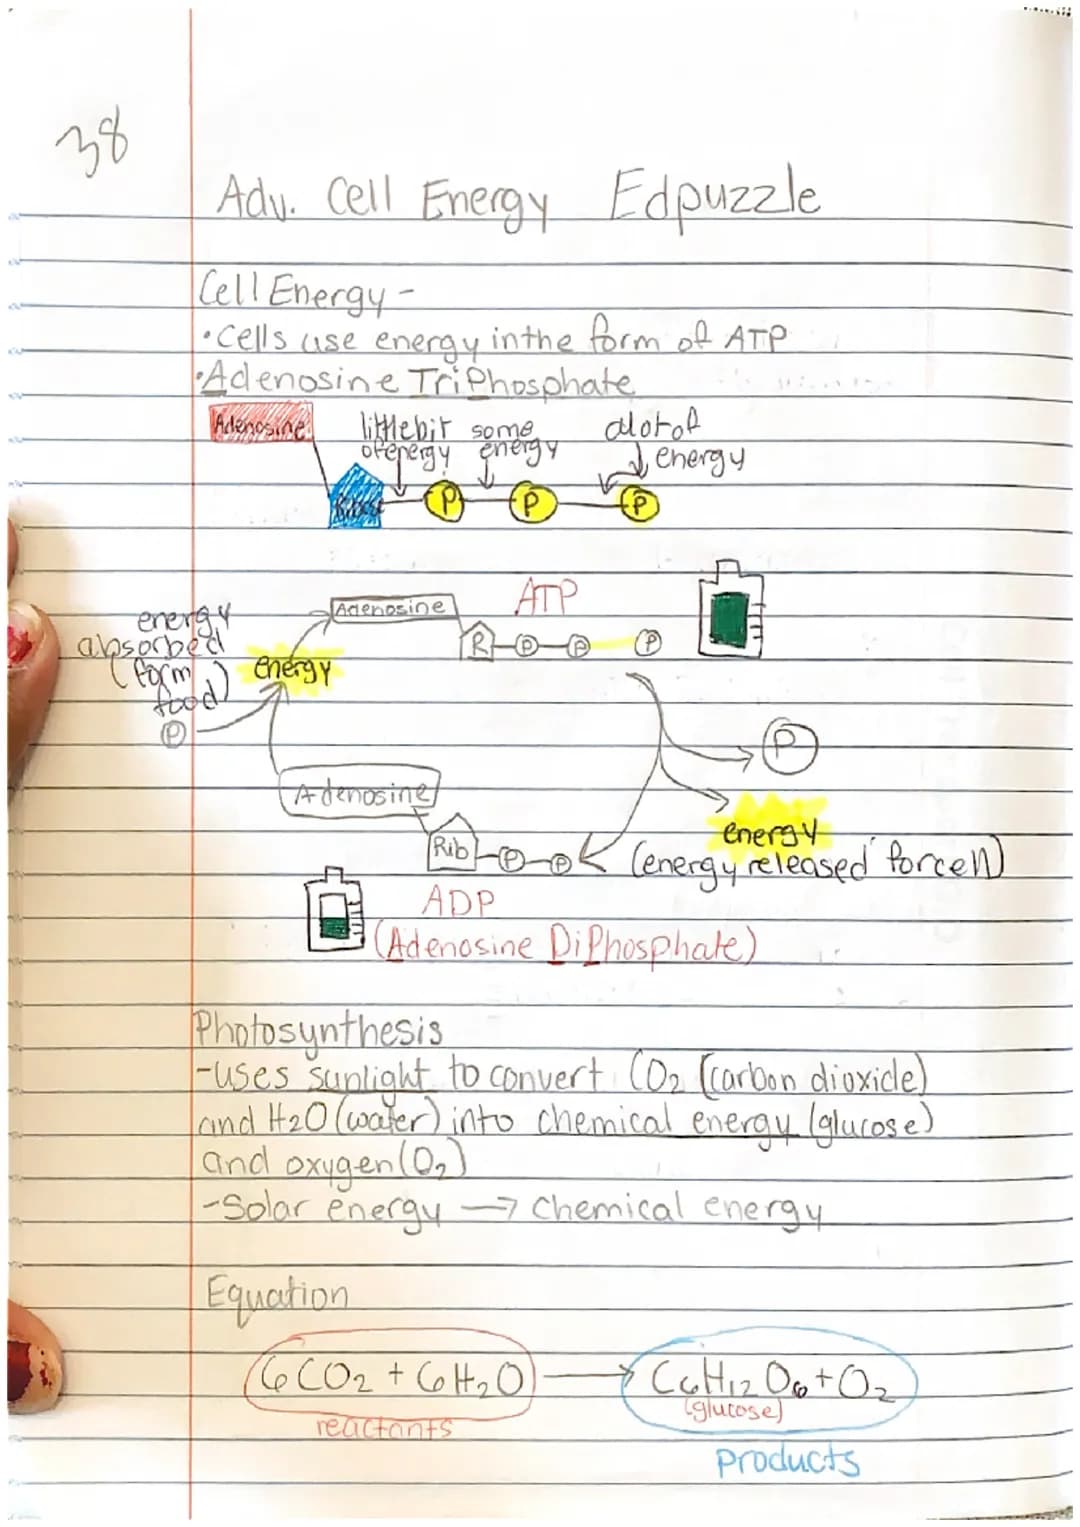 38
Adv. Cell Energy Edpuzzle
Cell Energy -
• Cells use energy in the form of ATP
• Adenosine TriPhosphate
Adenosine
little bit
of energy
some
energy
alot of
energy
Ribose
P
P
P
ATP
energy
absorbed
(form
food)
P
energy
Adenosine
R
P
P
P
P
energy
(energy released for cell)
Adenosine
Rib
P
P
ADP
(Adenosine DiPhosphate)
Photosynthesis
-uses sunlight to convert CO2 (carbon dioxide)
and H2O (water) into chemical energy (glucose)
and oxygen (O2)
-Solar energy → Chemical energy
Equation
6CO2 + 6H2O → C6H12O6 + O2
(glucose)
reactants
products